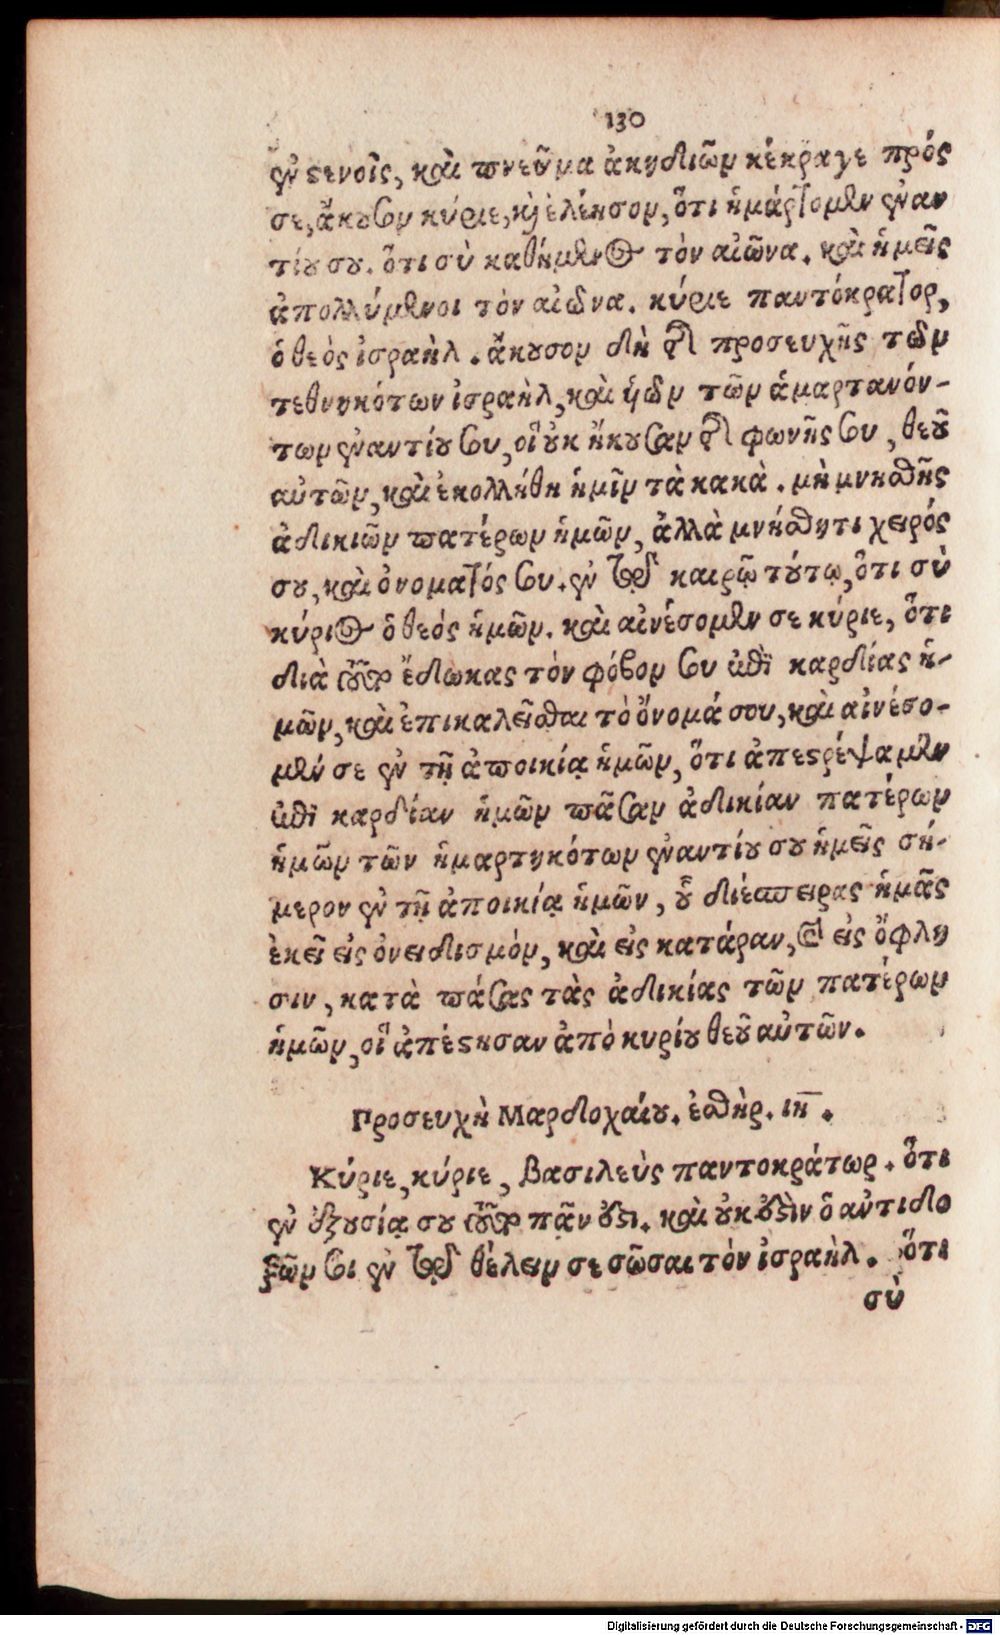 130
ἐν στενοῖς, καὶ πνεῦμα ἀκηδιῶν κέκραγε πρός
σε, ἄκουσον κύριε, καὶ ἐλέησον, ὅτι ἡμάρτομεν ἐναν
τίου σου. ὅτι σὺ καθήμενος τὸν αἰῶνα. καὶ ἡμεῖς
ἀπολλύμενοι τὸν αἰῶνα. κύριε παντόκρατορ,
ὁ θεὸς ἰσραὴλ. ἄκουσον δὴ τῆς προσευχῆς τῶν
τεθνηκότων ἰσραὴλ, καὶ ὑῶν τῶν ἁμαρτανόν-
των ἐναντίου σου, οἳ οὐκ ἤκουσαν τῆς φωνῆς σου, θεοῦ
αὐτῶν, καὶ ἐκολλήθη ἡμῖν τὰ κακὰ. μὴ μνησθῇς
ἀδικιῶν πατέρων ἡμῶν, ἀλλὰ μνήσθητι χειρός
σου, καὶ ὀνοματός σου. ἐν τῷ καιρῷ τούτῳ, ὅτι σὺ
κύριος ὁ θεὸς ἡμῶν. καὶ αἰνέσομεν σε κύριε, ὅτι
διὰ τοῦτο ἔδωκας τὸν φόβον σου ἐπὶ καρδίας ἡ-
μῶν, καὶ ἐπικαλεῖσθαι τὸ ὄνομά σου, καὶ αἰνέσο-
μέν σε ἐν τῇ ἀποικίᾳ ἡμῶν, ὅτι ἀπεστρέψαμεν
ἐπὶ καρδίαν ἡμῶν πᾶσαν ἀδικίαν πατέρων
ἡμῶν τῶν ἡμαρτηκότων ἐναντίου σου ἡμεῖς σή-
μερον ἐν τῇ ἀποικίᾳ ἡμῶν, οὗ διέσπειρας ἡμᾶς
ἐκεῖ εἰς ὀνειδισμὸν, καὶ εἰς κατάραν, καὶ εἰς ὄφλη
σιν, κατὰ πάσας τὰς ἀδικίας τῶν πατέρων
ἡμῶν, οἳ ἀπέστησαν ἀπὸ κυρίου θεοῦ αὐτῶν.
Προσευχὴ Μαρδοχαίου. ἐσθὴρ. ιη.
Κύριε, κύριε, βασιλεὺς παντοκράτωρ. ὅτι
ἐν ἐξουσίᾳ σου τὸ πᾶν ἐστι. καὶ οὐκ ἔστιν ὁ ἀντιδο
ξῶν σοι ἐν τῷ θέλειν σε σῶσαι τὸν ἰσραὴλ. ὅτι
σὺ
Digitalisierung gefördert durch die Deutsche Forschungsgemeinschaft - DFG